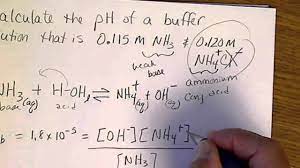 alculate the pH of a buffer
ution that is 0.115 M NH₃ & 0.120 M
NH₄Cl
weak base
ammonium
NH₃ + H-OH(l) ⇌ NH₄⁺(aq) + OH⁻(aq)
base (aq) acid conj acid
b = 1.8 x 10⁻⁵ = [OH⁻][NH₄⁺]
[NH₃]